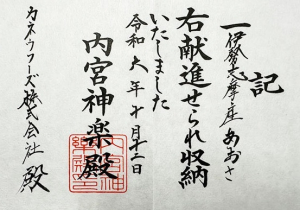 記
一 伊勢志摩産 あおさ
右献進せられ収納
いたしました
令和六年十月十二日
内宮神楽殿
カネウフーズ株式会社 殿